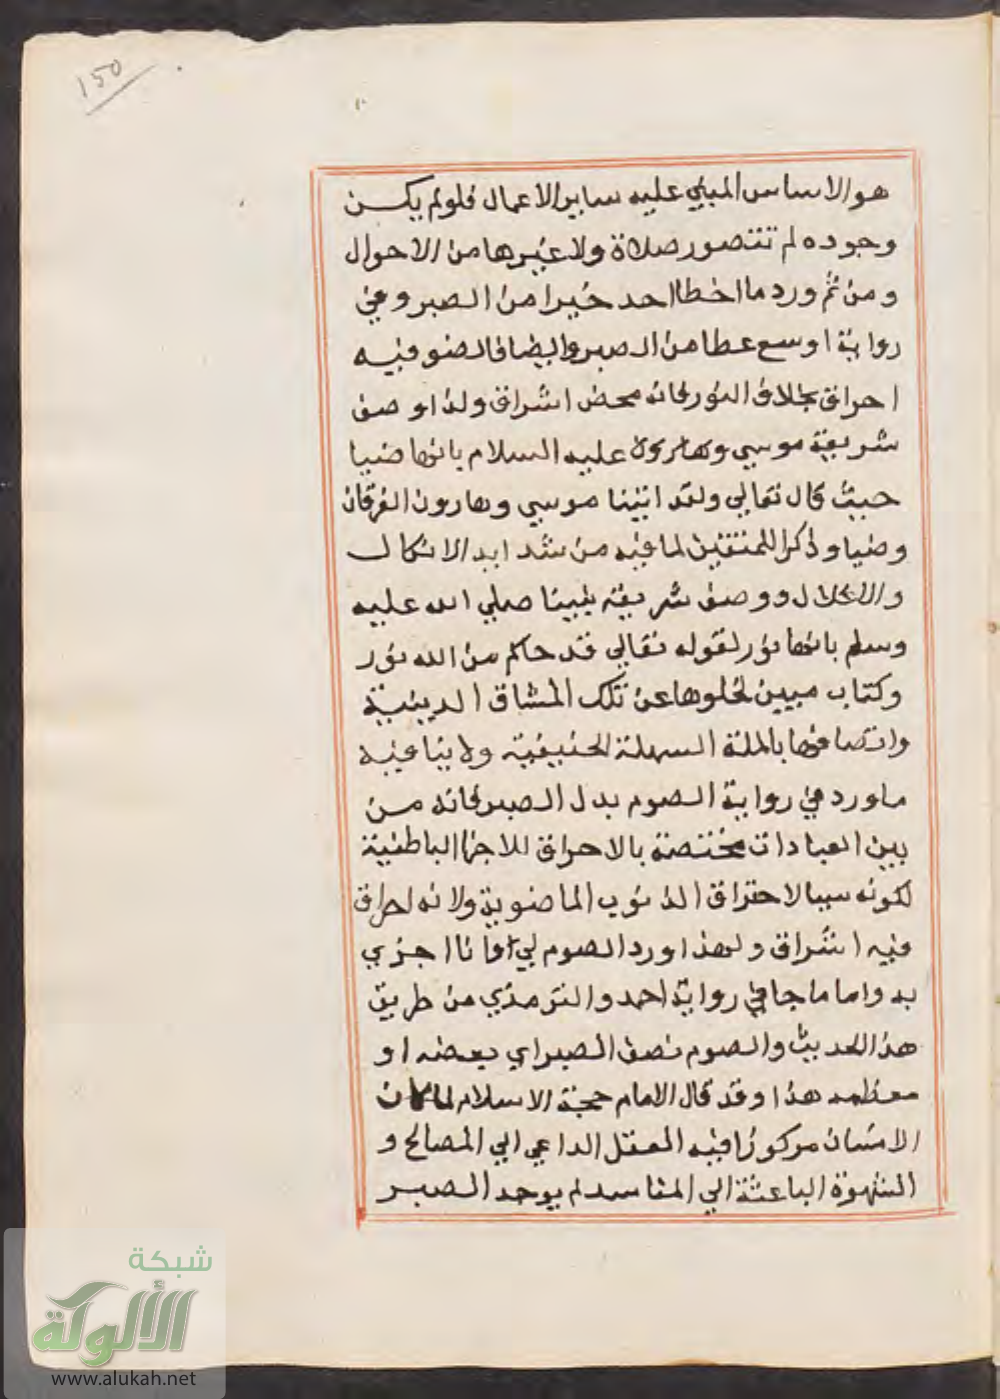 150
هو الاساس المبني عليه ساير الاعمال فلولم يكن
وجوده لم تتصور صلاة ولا غيرها من الاحوال
ومن ثم ورد ما اخطا احد خيرا من الصبر وفي
رواية اوسع عطا من الصبر وايضا فالضو فيه
احراق بخلاف النور فانه محض اشراق ولذا وصف
شريعة موسي وهارون عليه السلام بانها ضيا
حيث قال تعالي ولقد اتينا موسي وهارون الفرقان
وضيا وذكرا للمتقين لما فيه من شدايد الانكال
والاغلال ووصف شريعة نبينا صلي الله عليه
وسلم بانها نور لقوله تعالي قد جاكم من الله نور
وكتاب مبين لخلوها عن تلك المشاق الدينية
واتصافها بالملة السهلة الحنيفية ولا ينافيه
ماورد في رواية الصوم بدل الصبر فانه من
بين العبادات مختصة بالاحراق للاجزا الباطنية
لكونه سببا لاحتراق الذنوب الماضوية ولانه احراق
فيه اشراق ولهذا ورد الصوم لي وانا اجزي
به واما ما جا في رواية احمد والترمذي من طريق
هذا الحديث والصوم نصف الصبر اي بعضه او
معظمه هذا وقد قال الامام حجة الاسلام لما كان
الانسان مركوزا فيه العقل الداعي الي المصالح و
الشهوة الباعثة الي المفاسد لم يوجد الصبر
شبكة
الألوكة
www.alukah.net